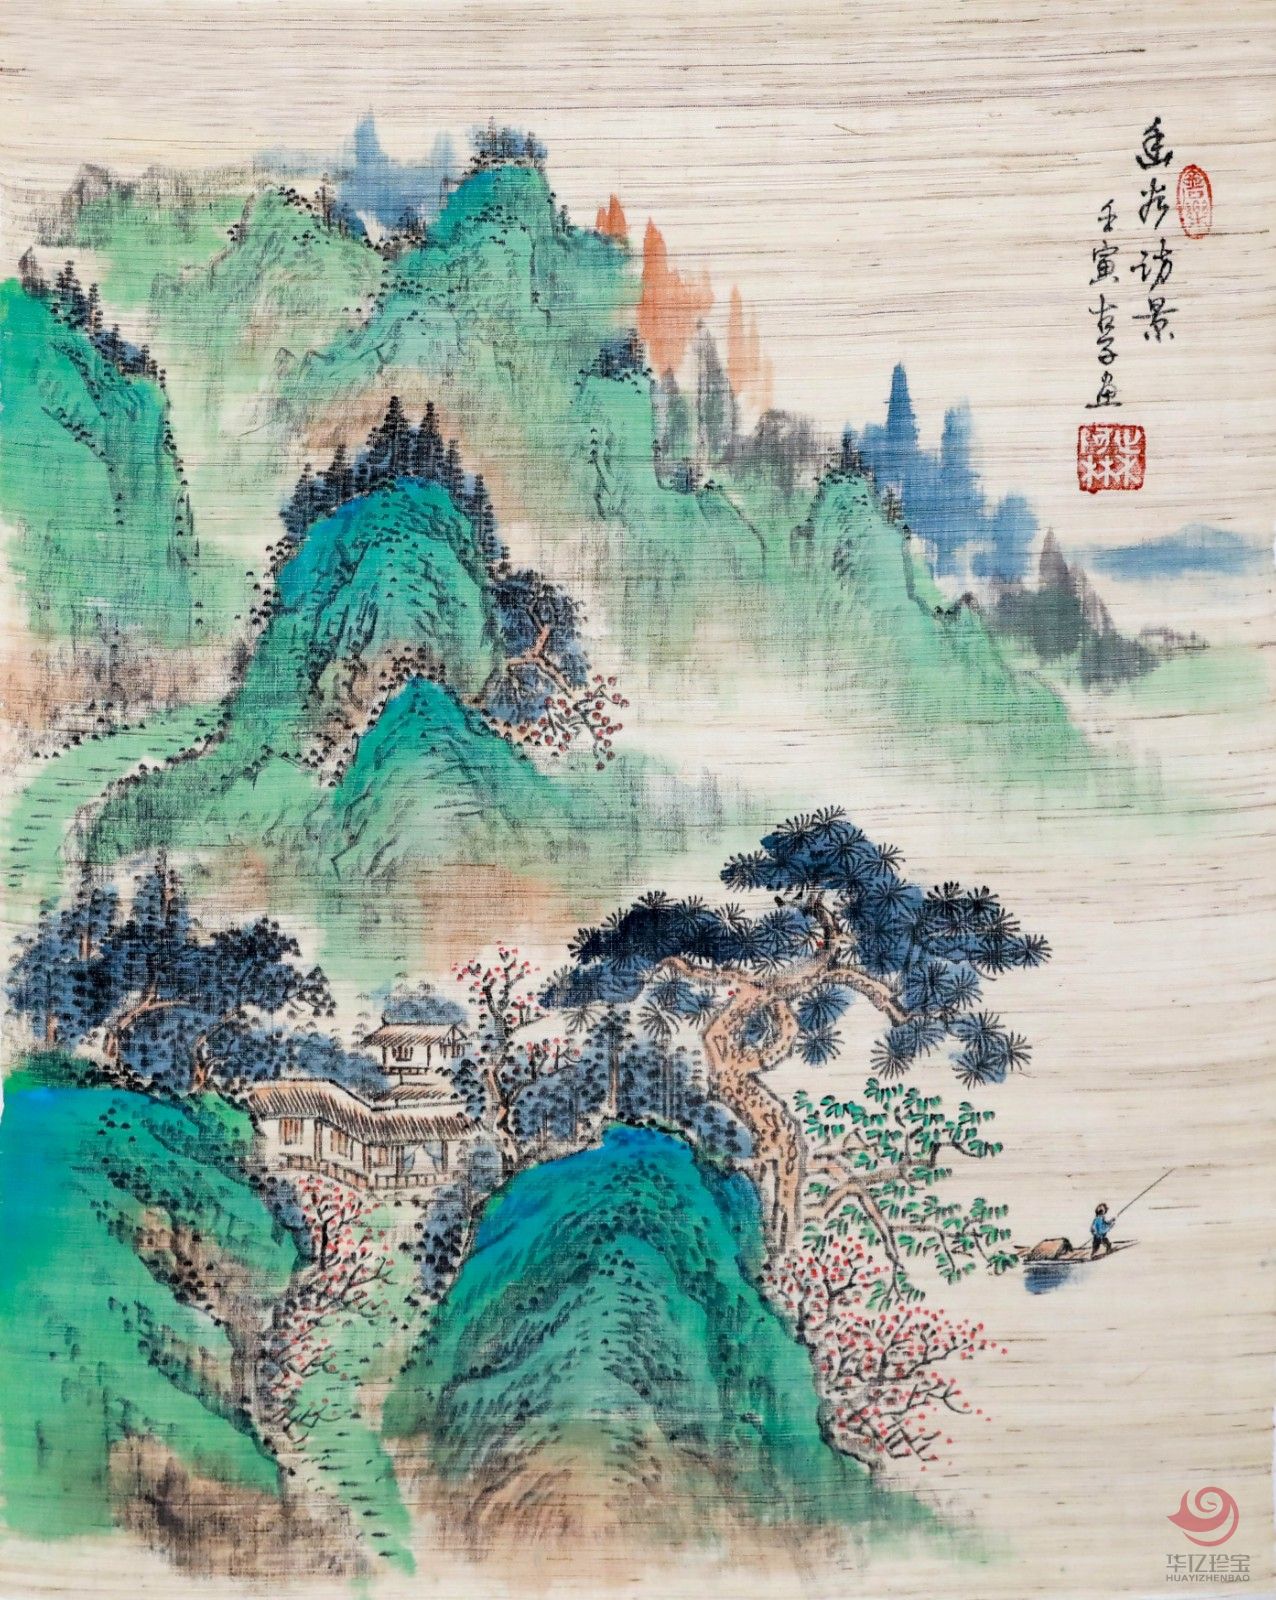 幽谷访景
壬寅古子画
华亿珍宝
HUAYIZHENBAO